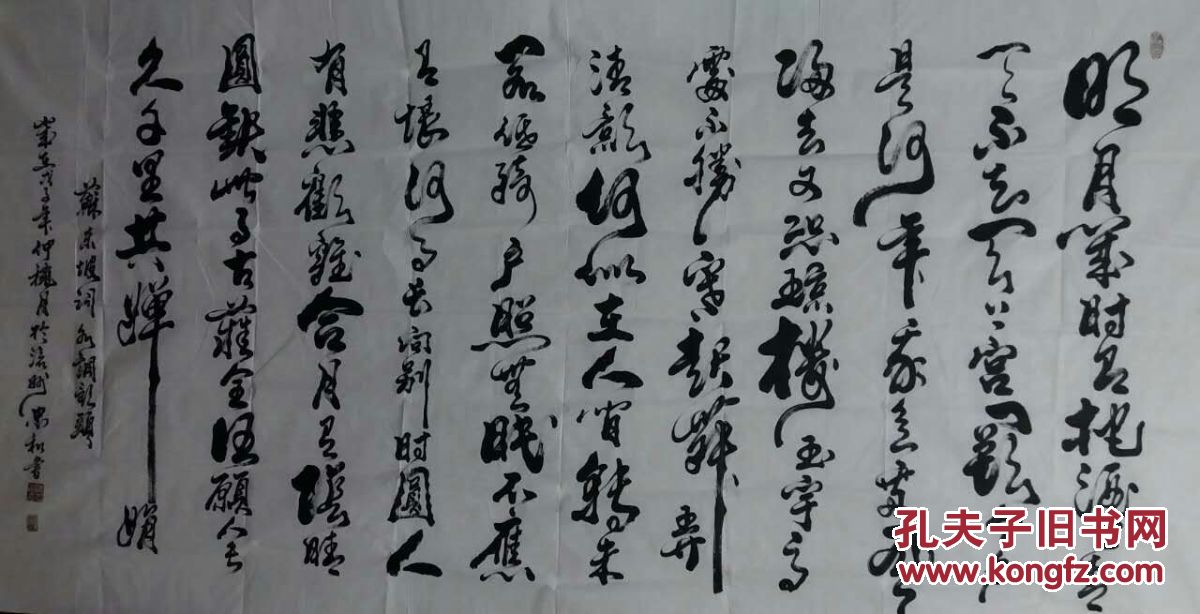 明月幾时有把酒問青
天不知天上宫闕今夕
是何年我欲乘風
歸去又恐瓊樓玉宇高
處不勝寒起舞弄
清影何似在人间轉朱
阁低绮户照無眠不應
有恨何事长向别时圓人
有悲歡離合月有陰晴
圓缺此事古難全但願人长
久千里共嬋娟
蘇東坡词水調歌頭
歲在戊子年仲穐月於 書
孔夫子旧书网
www.kongfz.com